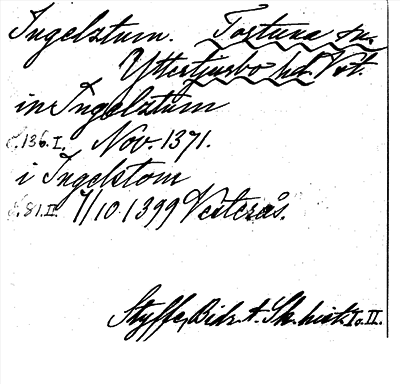 Ingelstum. Tortuna sn.
Yttertjurbo hd. Vst.
in Ingelztum
s. 136. I. Nov. 1371.
i Ingelstom
s. 81. II. 7/10 1399 Vesterås.
Styffe, Bidr. t. Sk. hist. I o. II.